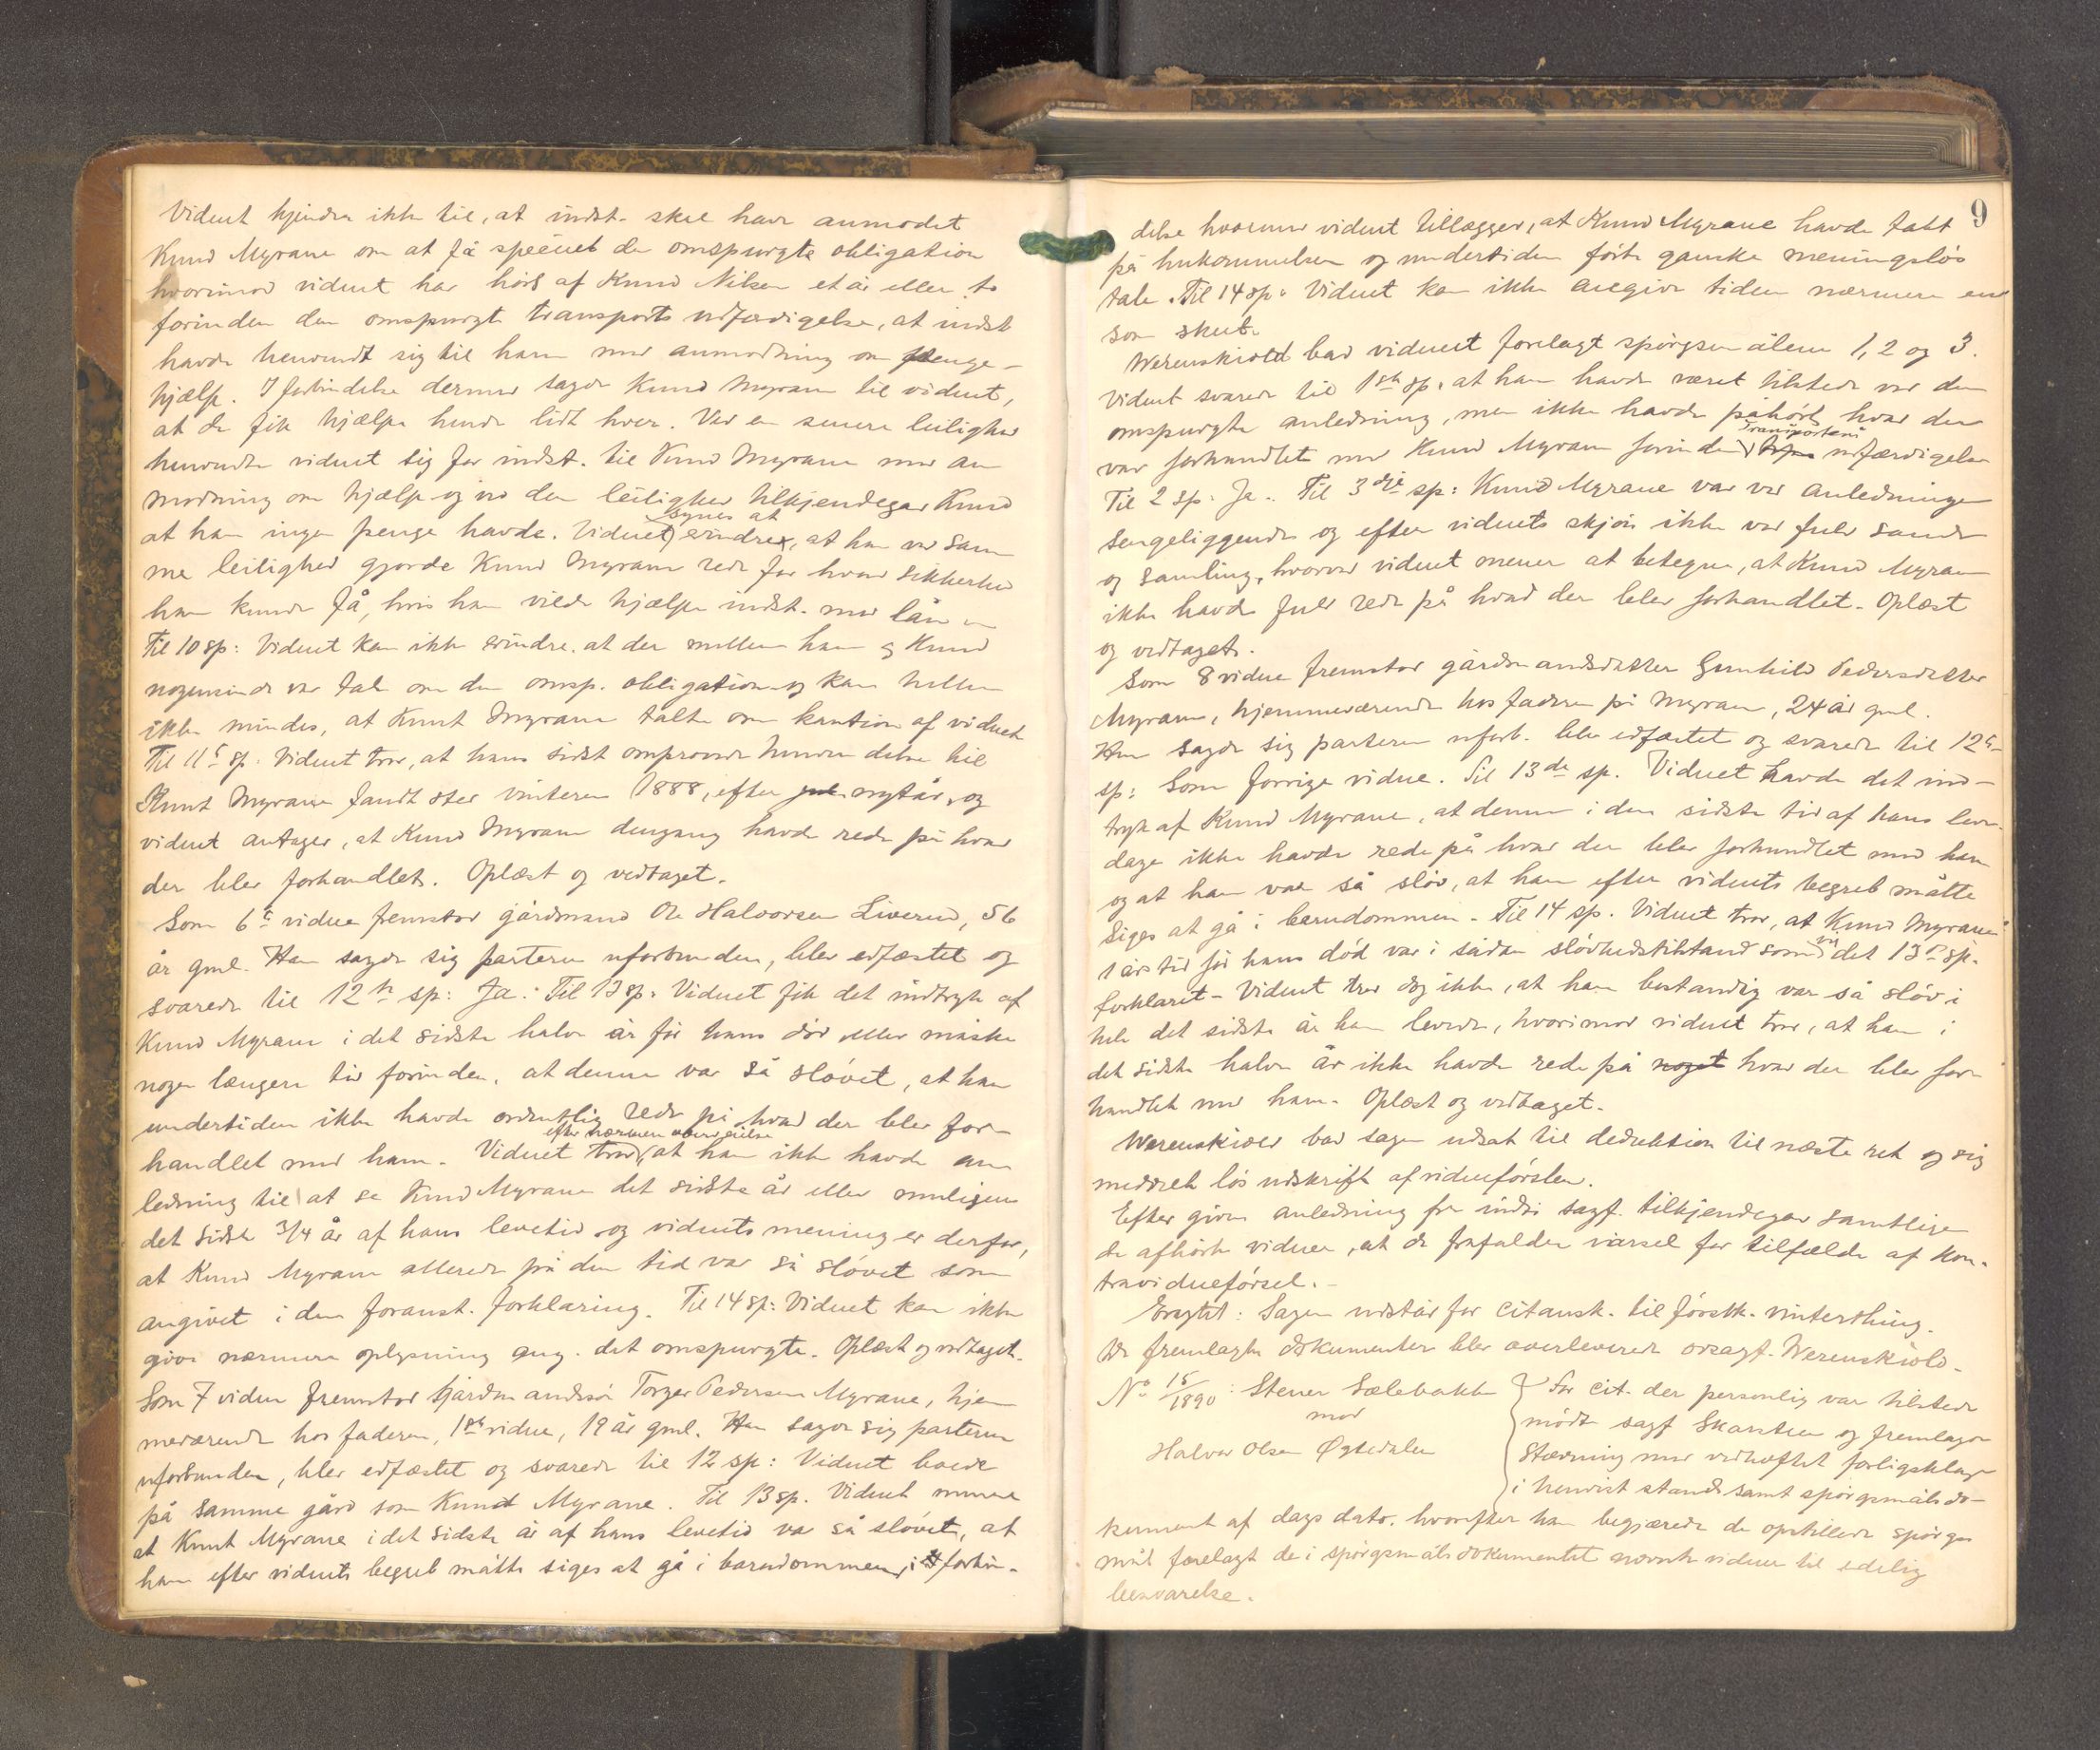 Vidnet kjender ikke til, at indst. skal have anmodet
Knud Myrane om at få specielt den omspurgte obligation
hvorimod vidnet har hört af Knud Nilsen et år eller to
forinden den omspurgte transports udfærdigelse, at indst
havde henvendt sig til ham med anmodning om penge-
hjælp. I forbindelse dermed sagde Knud Myrane til vidnet,
at de fik hjælpe hende lidt hver. Ved en senere leilighed
henvendte vidnet sig for indst. til Knud Myrane med an
modning om hjælp og ved den leilighed tilkjendegav Knud
at han ingen penge havde. Vidnet synes at erindre, at han ved sam
me leilighed gjorde Knud Myrane rede for hvad sikkerhed
han kunde få, hvis han vilde hjælpe indst. med lån
Til 10 sp: Vidnet kan ikke erindre, at der mellem ham og Knud
nogensinde var tale om den omsp. obligation og kan heller
ikke mindes, at Knut Myrane talte om kaution af vidnet
Til 11te sp: Vidnet tror, at hans sidst omprovede henvendelse til
Knut Myrane fandt sted vinteren 1888, efter nytår, og
vidnet antager, at Knud Myrane dengang havde rede på hvad
der blev forhandlet. Oplæst og vedtaget.
Som 6te vidne fremstod gårdmand Ole Halvorsen Liverud, 56
år gml. Han sagde sig parterne uforbunden, blev edfæstet og
svarede til 12te sp: Ja. Til 13 sp: Vidnet fik det indtryk af
Knud Myrane i det sidste halve år för hans död eller måske
nogen længere tid forinden, at denne var så slövet, at han
undertiden ikke havde ordentlig rede på hvad der blev for-
handlet med ham. Vidnet tror efter nærmere overveielse, at han ikke havde an
ledning til at se Knud Myrane det sidste år eller muligens
det sidste 3/4 år af hans levetid og vidnets mening er derfor,
at Knud Myrane allerede på den tid var så slövet som
angivet i den foranst. forklaring. Til 14 sp: Vidnet kan ikke
give nærmere oplysning ang. det omspurgte. Oplæst og vedtaget.
Som 7 vidne fremstod Gårdmandssön Torger Pedersen Myrane, hjem
meværende hos faderen, 1ste vidne, 19 år gml. Han sagde sig parterne
uforbunden, blev edfæstet og svarede til 12 sp: Vidnet boede
på samme gård som Knud Myrane. Til 13 sp. Vidnet mener
at Knut Myrane i det sidste år af hans levetid var så slövet, at
han efter vidnets begreb måtte siges at gå i barndommen, i forbin-
9
delse hvormed vidnet tillægger, at Knud Myrane havde tabt
på hukommelsen og undertiden förte ganske meningslös
tale. Til 14 sp: Vidnet kan ikke angive tiden nærmere end
som skeet.
Werenskiold bad vidnet forelagt spörgsmålene 1, 2 og 3.
Vidnet svarede til 1ste sp. at han havde været tilstede ved den
omspurgte anledning, men ikke havde påhört hvad der
var forhandlet med Knud Myrane forinden Transportens udfærdigelse
Til 2 sp: Ja. Til 3dje sp: Knud Myrane var ved anledningen
sengeliggende og efter vidnets skjön ikke ved fuld sands
og samling, hvorved vidnet mener at betegne, at Knud Myrane
ikke havde fuld rede på hvad der blev forhandlet. Oplæst
og vedtaget.
Som 8 vidne fremstod gårdmandsdatter Gunhild Pedersdatter
Myrane, hjemmeværende hos faderen på Myrane, 24 år gml.
Hun sagde sig parterne uforb. blev edfæstet og svarede til 12te
sp: Som forrige vidne. Til 13de sp. Vidnet havde det ind-
tryk af Knud Myrane, at denne i den sidste tid af hans leve-
dage ikke havde rede på hvad der blev forhandlet med ham
og at han var så slöv, at han efter vidnets begreb måtte
siges at gå i barndommen. Til 14 sp. Vidnet tror, at Knud Myrane
1 års tid för hans död var i sådan slövhedstilstand som ved det 13de sp.
forklaret. Vidnet tror dog ikke, at han bestandig var så slöv i
hele det sidste år han levede, hvorimod vidnet tror, at han i
det sidste halve år ikke havde rede på noget hvad der blev for-
handlet med ham. Oplæst og vedtaget.
Werenskiold bad sagen udsat til deduktion til næste ret og sig
meddelt lös udskrift af vidneförslen.
Efter given anledning fra indst. sagf. tilkjendegav samtlige
de afhörte vidner, at de frafalder varsel for tilfælde af kon-
travidneförsel.
Eragtet: Sagen udstår for citansk. til förstk. vinterthing.
De fremlagte dokumenter blev overleveret orsagf. Werenskiold.
No 15/1890: Stener Sælebakke
mod
Halvor Olsen Øgtedalen
For cit. der personlig var tilstede
mödte sagf Skarstien og fremlagde
Stævning med vedheftet forligsklage
i henvist stand samt spörgsmåls do-
kument af dags dato, hvorefter han begjærede de opstillede spörgs
mål forelagt de i spörgsmålsdokumentet nævnte vidner til edelig
besvarelse.